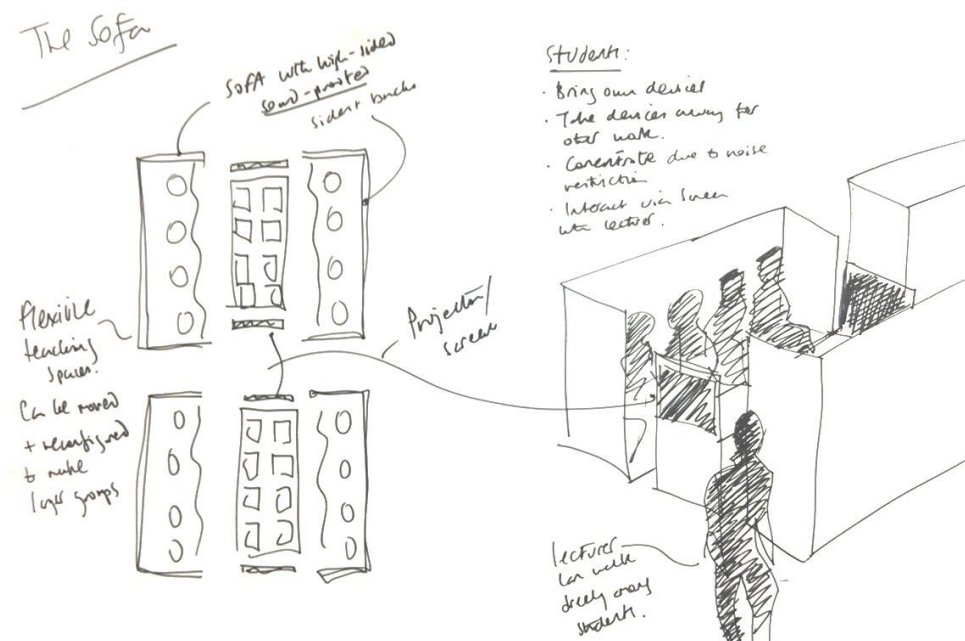 The Sofa
SOFA with high-sided
sound-proofed
sides + backs
flexible
teaching
spaces.
Can be moved
+ reconfigured
to make
larger groups
Projection/
screen
Students:
· Bring own devices
· Take devices away for
other work.
· Concentrate due to noise
restriction
· Interact via screen
with lecturer.
lecturer
can walk
freely among
students.